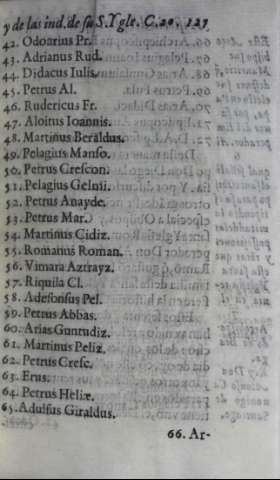 y de las ind. de su S. Ygle. C. 20. 127
42. Odoarius Pr.
43. Adrianus Rud.
44. Didacus Iulis.
45. Petrus Al.
46. Rudericus Fr.
47. Aloitus Ioannis.
48. Martinus Beraldus.
49. Pelagius Manso.
50. Petrus Crescon.
51. Pelagius Gelnii.
52. Petrus Anayde.
53. Petrus Mar.
54. Martinus Cidiz.
55. Romanus Roman.
56. Vimara Aztrayz.
57. Riquila Cl.
58. Adefonsus Pel.
59. Petrus Abbas.
60. Arias Guntudiz.
61. Martinus Peliz.
62. Petrus Cresc.
63. Erus.
64. Petrus Heliæ.
65. Adulfus Giraldus.
66. Ar-